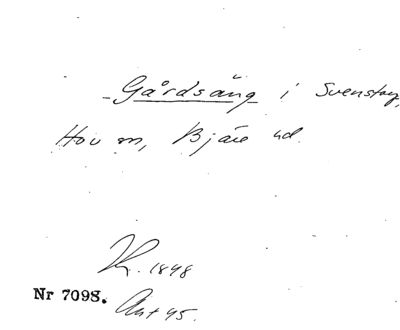 - Gårdsäng i Svenstorp,
Hov sn, Bjäre hd.
K. 1898
Nr 7098. Ant 45.